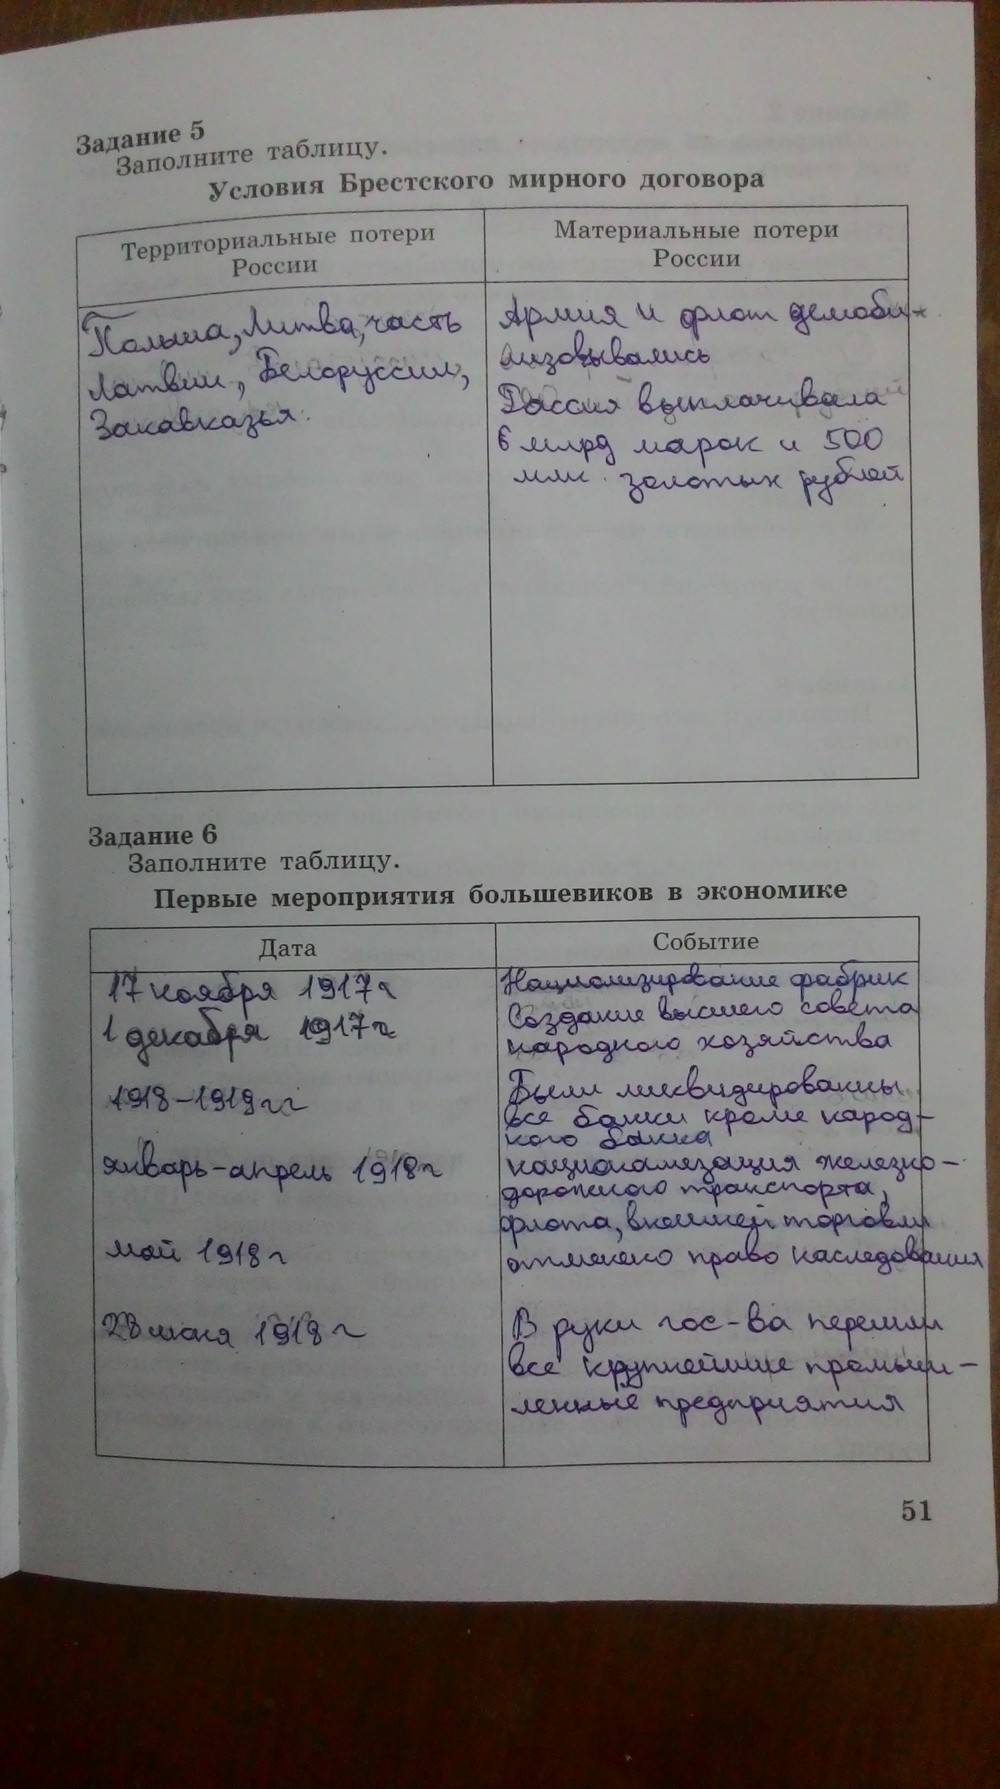 Задание 5
Заполните таблицу.
Условия Брестского мирного договора
Территориальные потери
России
Материальные потери
России
Польша, Литва, часть
Латвии, Белоруссии,
Закавказья.
Армия и флот демоби-
лизовывались
Россия выплачивала
6 млрд марок и 500
млн. золотых рублей
Задание 6
Заполните таблицу.
Первые мероприятия большевиков в экономике
Дата
Событие
17 ноября 1917 г
Национализирование фабрик
1 декабря 1917 г.
Создание высшего совета
народного хозяйства
1918-1919 гг
Были ликвидированы
все банки кроме народ-
ного банка
январь-апрель 1918 г
национализация железно-
дорожного транспорта,
флота, внешней торговли
май 1918 г
отменено право наследования
28 июня 1918 г
В руки гос-ва перешли
все крупнейшие промыш-
ленные предприятия
51